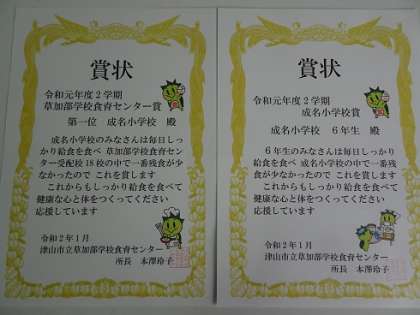 賞状
令和元年度２学期
草加部学校食育センター賞
第一位　成名小学校　殿
成名小学校のみなさんは毎日しっ
かり給食を食べ 草加部学校食育セン
ター受配校 18 校の中で一番残食が少
なかったので これを賞します
これからもしっかり給食を食べて
健康な心と体をつくってください
応援しています
令和２年１月
津山市立草加部学校食育センター
所長　本澤玲子
賞状
令和元年度２学期
成名小学校賞
成名小学校　６年生　殿
６年生のみなさんは毎日しっかり
給食を食べ 成名小学校の中で一番残
食が少なかったので これを賞します
これからもしっかり給食を食べて
健康な心と体をつくってください
応援しています
令和２年１月
津山市立草加部学校食育センター
所長　本澤玲子